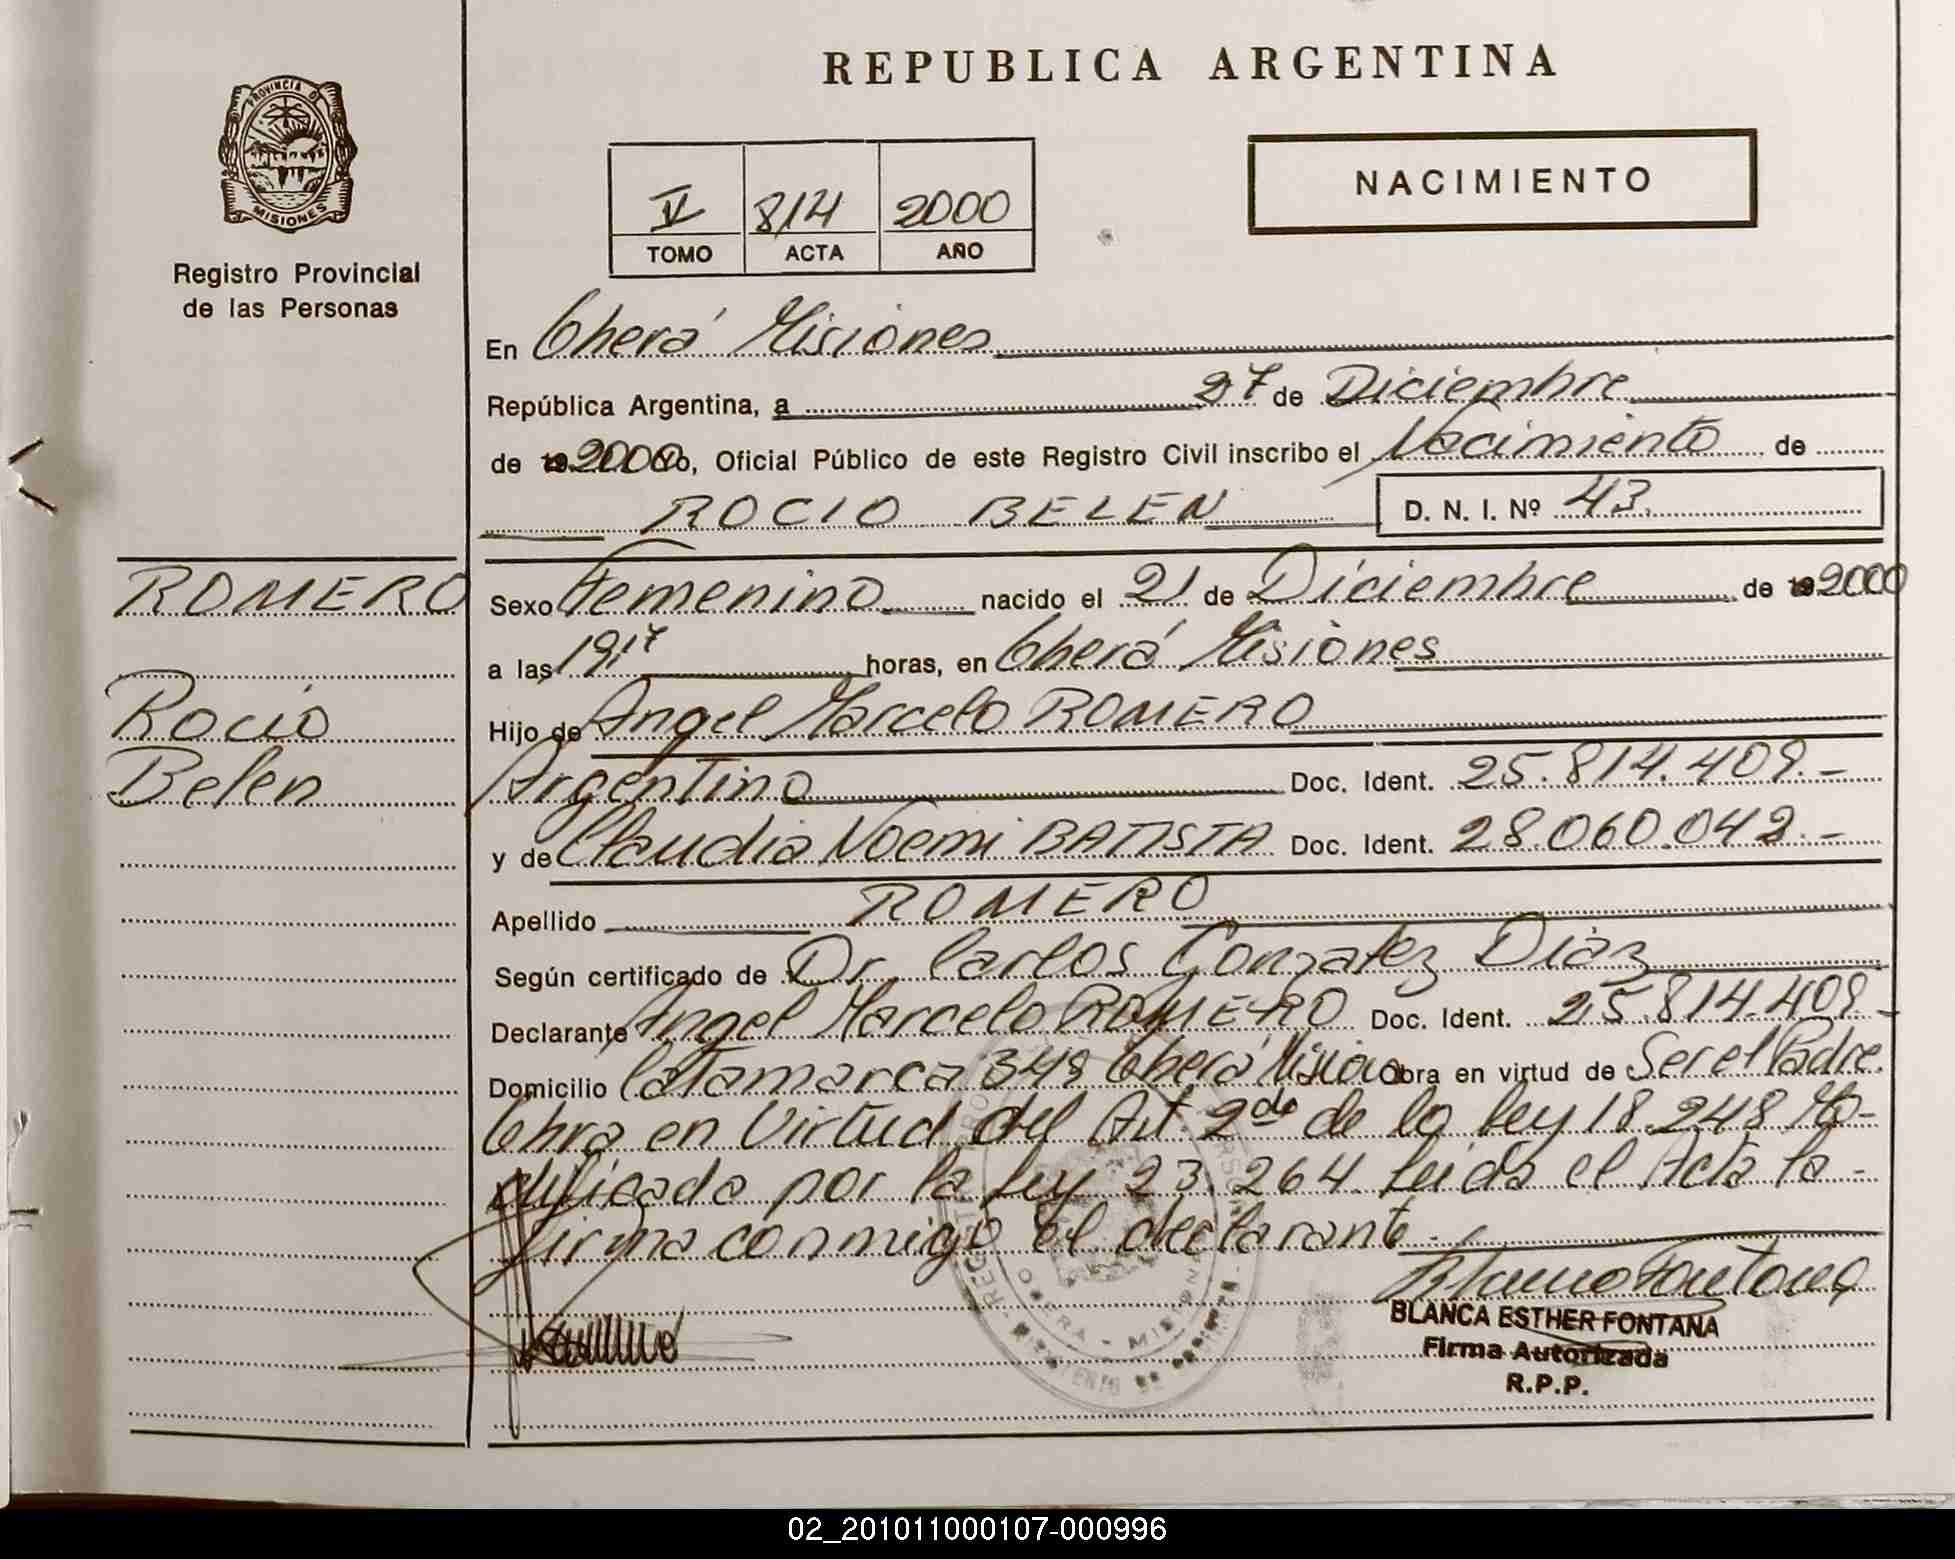 REPUBLICA ARGENTINA
PROVINCIA DE
MISIONES
Registro Provincial
de las Personas
V 814 2000
TOMO ACTA AÑO
NACIMIENTO
En Oberá Misiones
República Argentina, a 27 de Diciembre
de 19 2000 Yo, Oficial Público de este Registro Civil inscribo el Nacimiento de
ROCIO BELEN D. N. I. Nº 43.
ROMERO
Rocio
Belen
Sexo Femenino nacido el 21 de Diciembre de 19 2000
a las 19,17 horas, en Oberá Misiones
Hijo de Angel Marcelo ROMERO
Argentino Doc. Ident. 25.814.409.-
y de Claudia Noemi BATISTA Doc. Ident. 28.060.042.-
Apellido ROMERO
Según certificado de Dr. Carlos Gonzalez Diaz
Declarante Angel Marcelo ROMERO Doc. Ident. 25.814.409.-
Domicilio Catamarca 348 Oberá Misiones Obra en virtud de Ser el Padre.
Obra en Virtud del Art. 2do de la Ley 18.248 Mo-
dificada por la Ley 23.264. Leida el Acta la-
firma conmigo el declarante.
BLANCA ESTHER FONTANA
Firma Autorizada
R.P.P.
02_201011000107-000996